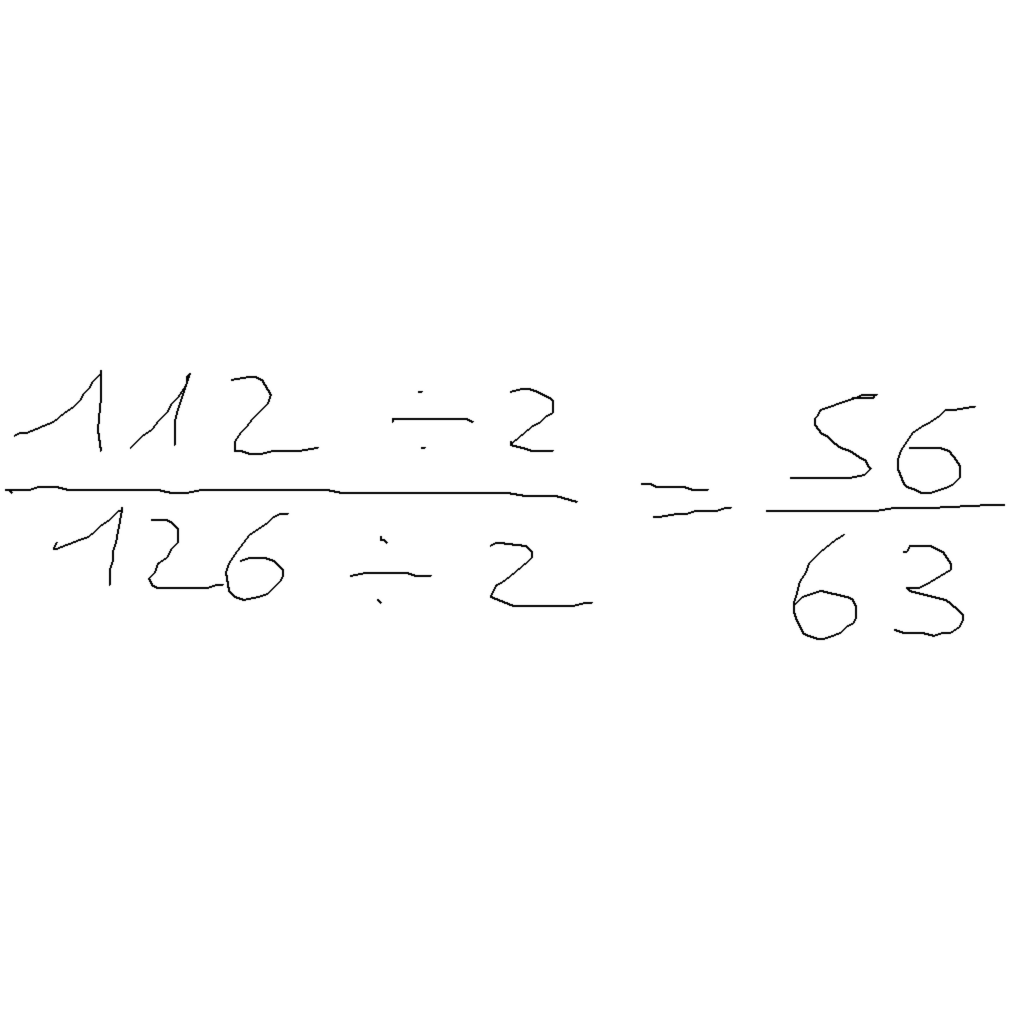 \frac{112 \div 2}{126 \div 2} = \frac{56}{63}